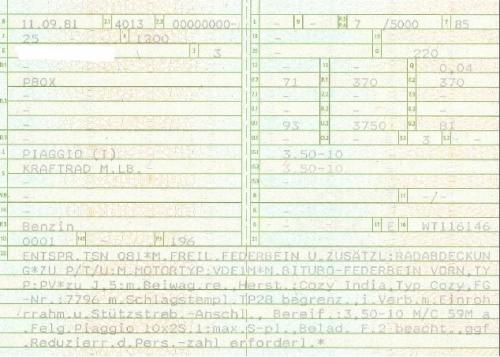 11.09.81 4013 00000000- - - 7 /5000 7 85
25 1300 -
3 - 220
- - - 0,04
PBOX 71 370 370
- - - -
- 93 3750 81
- - - 3 - -
PIAGGIO (I) 3.50-10
KRAFTRAD M.LB. 3.50-10
- -
- - -/-
- -
Benzin - E WT116146
0001 - 196
ENTSPR.TSN 081*M.FREIL.FEDERBEIN U.ZUSÄTZL:RADABDECKUN
G*ZU P/T/U:M.MOTORTYP:VDE1M*M.BITUBO-FEDERBEIN VORN,TY
P:PV*zu J,5:m.Beiwag.re.,Herst.:Cozy India,Typ Cozy,FG
-Nr.:7796 m.Schlagstempl.TP28 begrenz.,i.Verb.m.Einroh
rrahm.u.Stützstreb.-Anschl., Bereif.:3.50-10 M/C 59M a
.Felg.Piaggio 10x2S.1:max.S-pl.,Belad. F.2 beacht.,ggf
.Reduzierr.d.Pers.-zahl erforderl.*